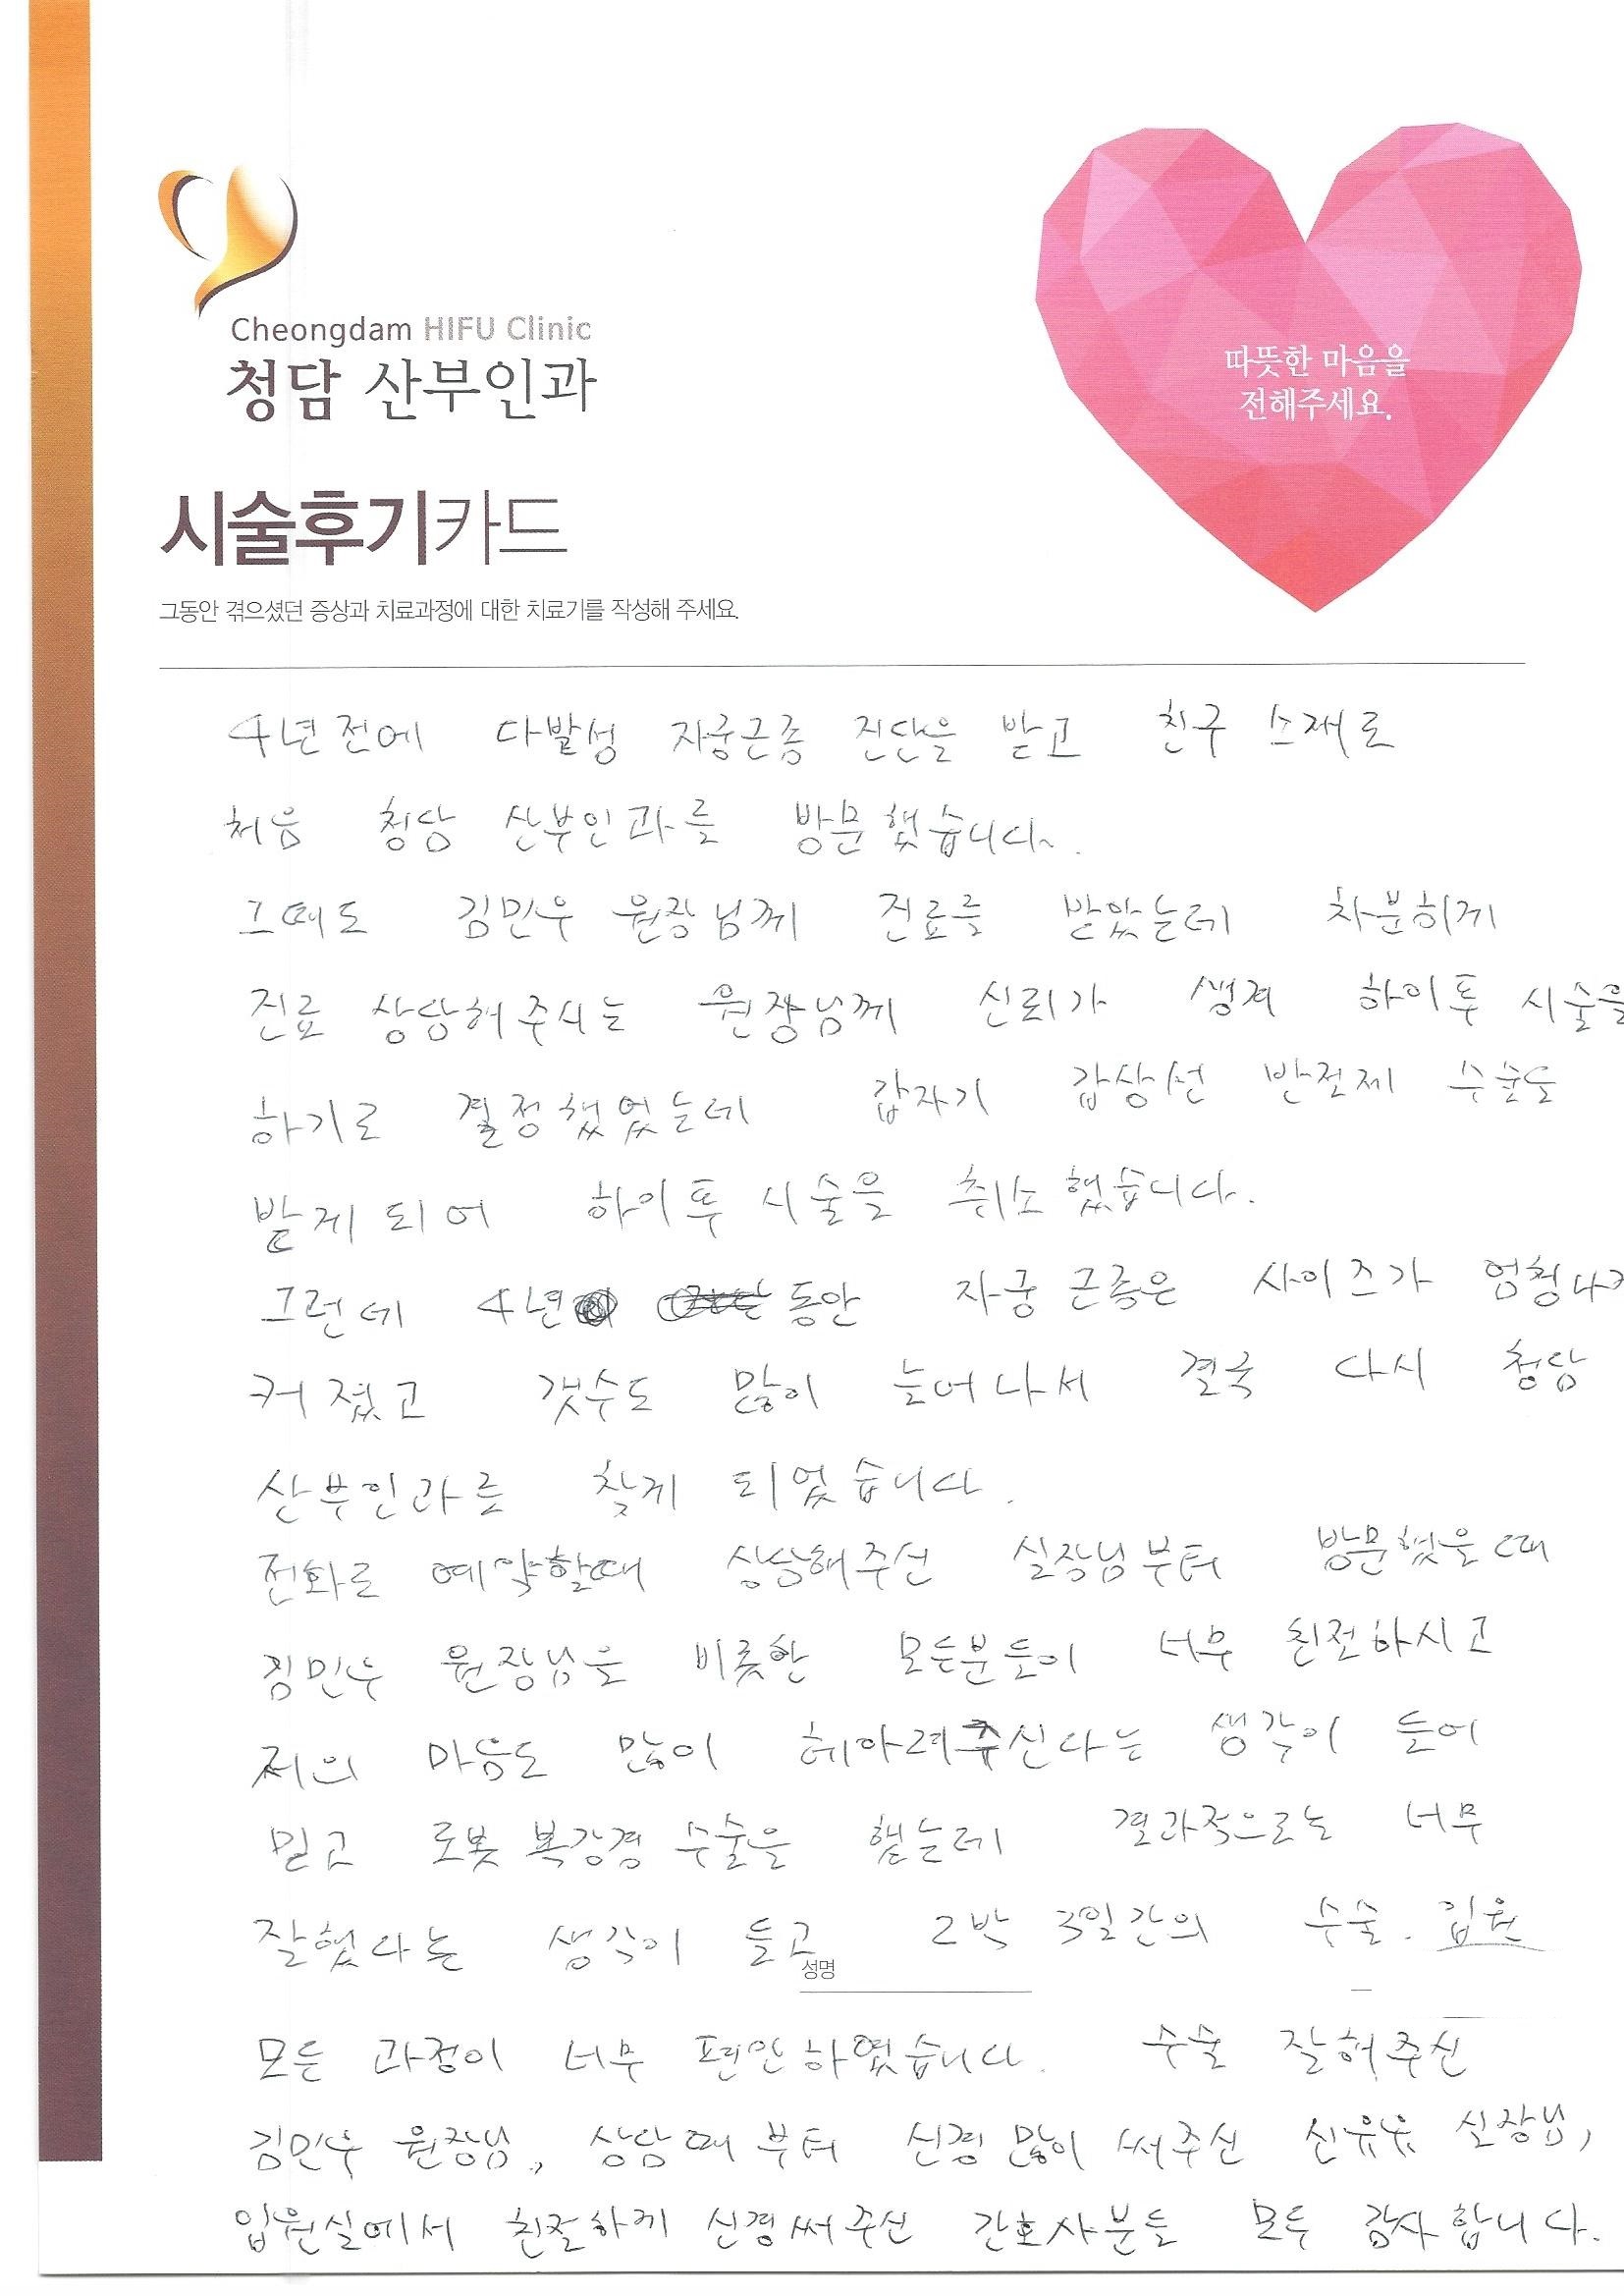 Cheongdam HIFU Clinic
청담 산부인과
따뜻한 마음을
전해주세요.
시술후기카드
그동안 겪으셨던 증상과 치료과정에 대한 치료기를 작성해 주세요.
4년전에 다발성 자궁근종 진단을 받고 친구 소개로
처음 청담 산부인과를 방문했습니다~.
그때도 김민우 원장님께 진료를 받았는데 차분하게
진료 상담해주시는 원장님께 신뢰가 생겨 하이푸 시술을
하기로 결정했었는데 갑자기 갑상선 반절제 수술을
받게되어 하이푸 시술을 취소했습니다.
그런데 4년 동안 자궁근종은 사이즈가 엄청나게
커졌고 갯수도 많이 늘어나서 결국 다시 청담
산부인과를 찾게 되었습니다.
전화로 예약할때 상담해주신 실장님부터 방문했을때
김민우 원장님을 비롯한 모든분들이 너무 친절하시고
저의 마음도 많이 헤아려주신다는 생각이 들어
믿고 로봇 복강경 수술을 했는데 결과적으로는 너무
잘했다는 생각이 들고 2박 3일간의 수술. 입원
성명
모든 과정이 너무 편안하였습니다. 수술 잘해주신
김민우 원장님, 상담때부터 신경많이 써주신 신유유 실장님,
입원실에서 친절하게 신경써주신 간호사분들 모두 감사합니다.